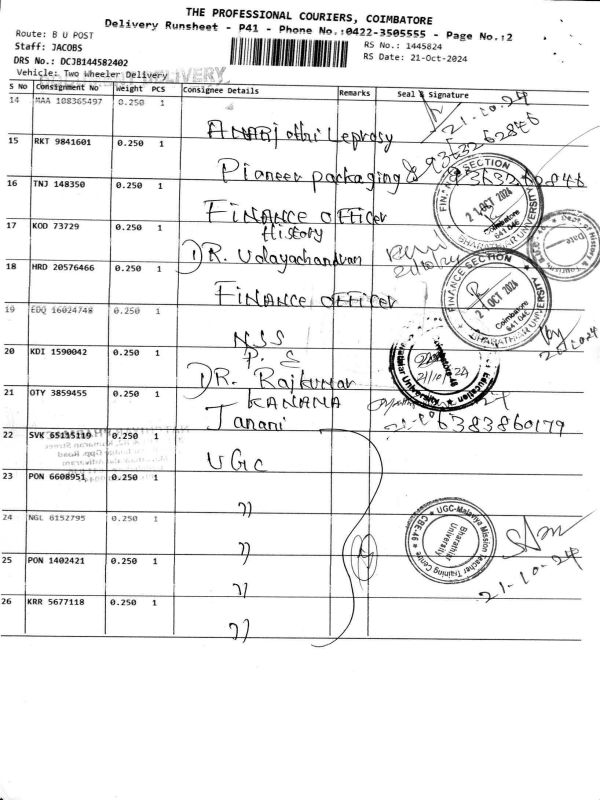 THE PROFESSIONAL COURIERS, COIMBATORE
Delivery Runsheet - P41 - Phone No.:0422-3505555 - Page No.:2
Route: B U POST
Staff: JACOBS
RS No.: 1445824
DRS No.: DCJB144582402
RS Date: 21-Oct-2024
Vehicle: Two Wheeler Delivery
S No Consignment No Weight PCS Consignee Details Remarks Seal & Signature
14 MAA 108365497 0.250 1
21-10-24
15 RKT 9841601 0.250 1 Pioneer packaging
16 TNJ 148350 0.250 1 FINANCE officer
FINANCE SECTION
21 OCT 2024
Coimbatore
641 046
BHARATHIAR UNIVERSITY
17 KOD 73729 0.250 1 History
DR. Udayachandran
21/10/24
Date
18 HRD 20576466 0.250 1 FINANCE officer
FINANCE SECTION
21 OCT 2024
Coimbatore
641 046
BHARATHIAR UNIVERSITY
19 EDQ 16024748 0.250 1 NSS
21-10-24
20 KDI 1590042 0.250 1 P. E
DR. Rajkumar
21/10/24
21 OTY 3859455 0.250 1 KANANA
Janani
6383860179
22 SVK 65115119 0.250 1 UGC
23 PON 6608951 0.250 1 "
24 NGL 6152795 0.250 1 "
UGC-Malaviya Mission Teacher Training Centre
CBE-46
Bharathiar
University
21-10-24
25 PON 1402421 0.250 1 "
26 KRR 5677118 0.250 1 "